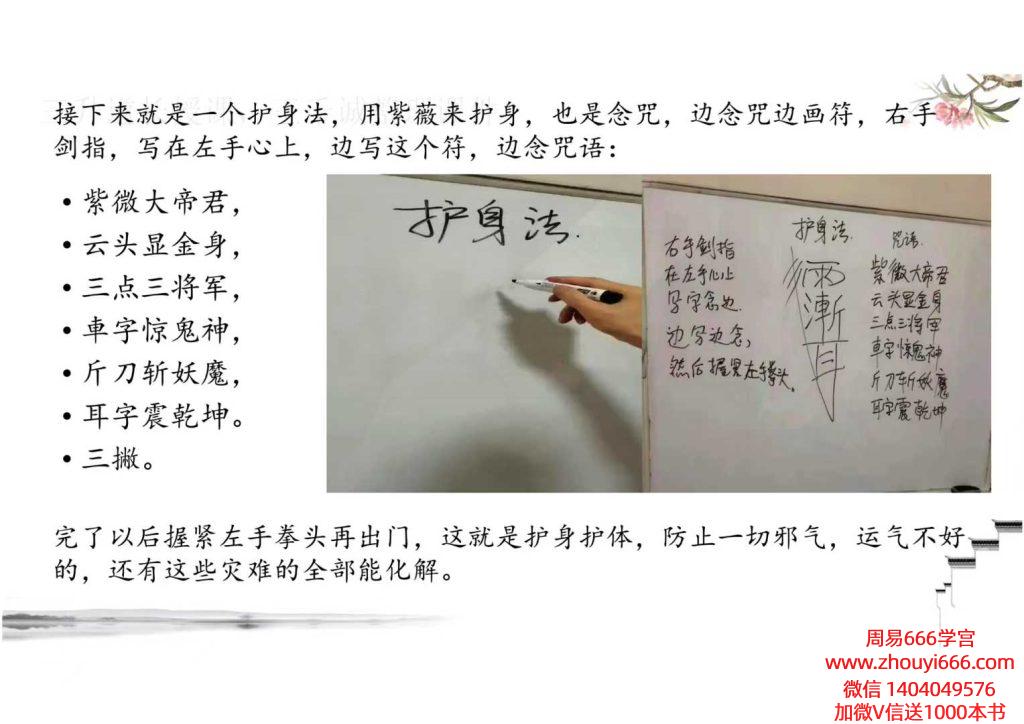 接下来就是一个护身法，用紫薇来护身，也是念咒，边念咒边画符，右手
剑指，写在左手心上，边写这个符，边念咒语：
• 紫微大帝君，
• 云头显金身，
• 三点三将军，
• 車字惊鬼神，
• 斤刀斩妖魔，
• 耳字震乾坤。
• 三撇。
护身法.
护身法.
右手剑指
在左手心上
写字念边.
边写边念，
然后握紧左手拳头。
雨
漸
耳
咒语.
紫微大帝君
云头显金身
三点三将军
車字惊鬼神
斤刀斩妖魔
耳字震乾坤
完了以后握紧左手拳头再出门，这就是护身护体，防止一切邪气，运气不好
的，还有这些灾难的全部能化解。
周易666学宫
www.zhouyi666.com
微信 1404049576
加微V信送1000本书